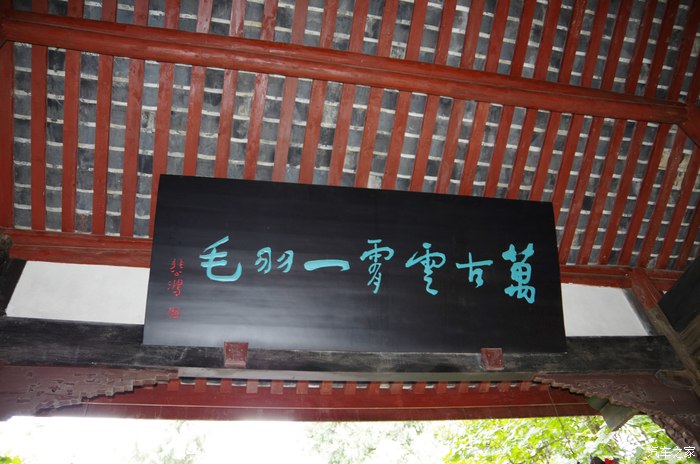 萬古雲霄一羽毛
悲鴻
汽车之家